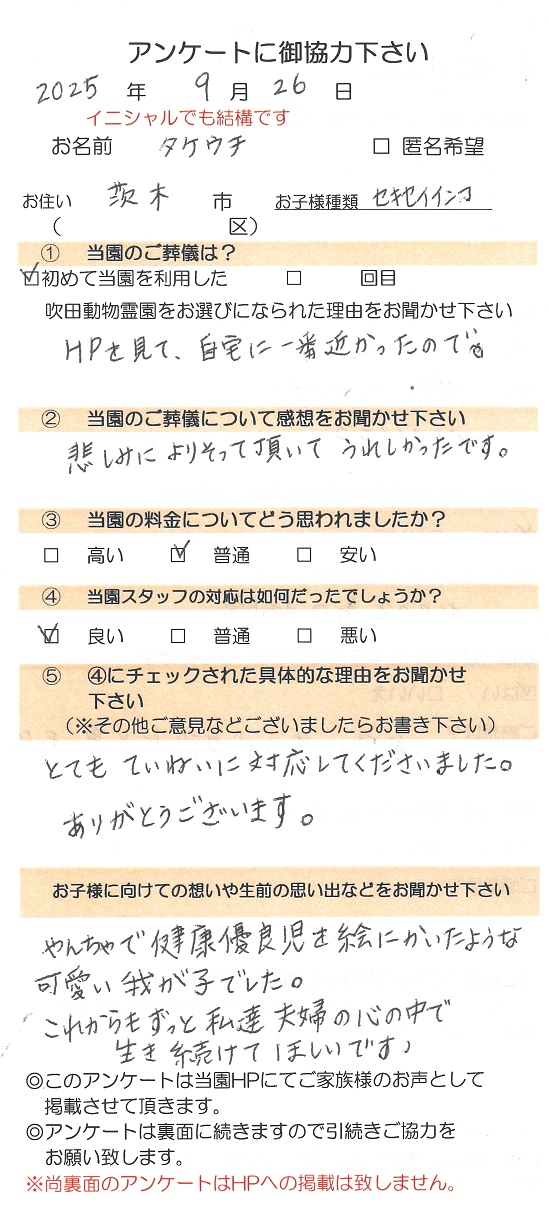 アンケートに御協力下さい
2025 年 9 月 26 日
イニシャルでも結構です
お名前 タケウチ □ 匿名希望
お住い 茨木 市 お子様種類 セキセイインコ
( 区)
① 当園のご葬儀は？
☑初めて当園を利用した □ 回目
吹田動物霊園をお選びになられた理由をお聞かせ下さい
HPを見て、自宅に一番近かったので。
② 当園のご葬儀について感想をお聞かせ下さい
悲しみによりそって頂いてうれしかったです。
③ 当園の料金についてどう思われましたか？
□ 高い ☑ 普通 □ 安い
④ 当園スタッフの対応は如何だったでしょうか？
☑ 良い □ 普通 □ 悪い
⑤ ④にチェックされた具体的な理由をお聞かせ
下さい
（※その他ご意見などございましたらお書き下さい）
とても ていねいに対応してくださいました。
ありがとうございます。
お子様に向けての想いや生前の思い出などをお聞かせ下さい
やんちゃで健康優良児を絵にかいたような
可愛い我が子でした。
これからもずっと私達夫婦の心の中で
生き続けてほしいです
◎このアンケートは当園HPにてご家族様のお声として
掲載させて頂きます。
◎アンケートは裏面に続きますので引続きご協力を
お願い致します。
※尚裏面のアンケートはHPへの掲載は致しません。